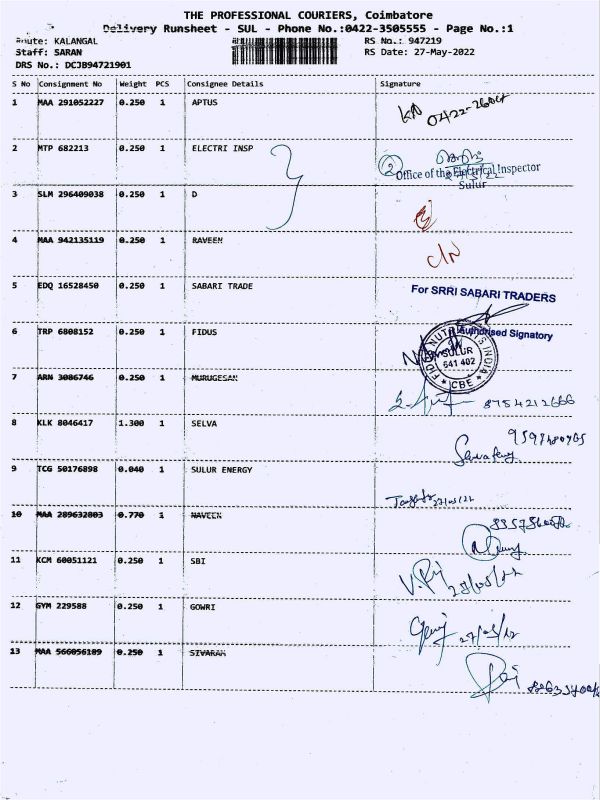 THE PROFESSIONAL COURIERS, Coimbatore
Delivery Runsheet - SUL - Phone No.:0422-3505555 - Page No.:1
Route: KALANGAL
RS No.: 947219
Staff: SARAN
RS Date: 27-May-2022
DRS No.: DCJB94721901
S No Consignment No Weight PCS Consignee Details Signature
1 MAA 291052227 0.250 1 APTUS
2 MTP 682213 0.250 1 ELECTRI INSP
Office of the Electrical Inspector
Sulur
3 SLM 296409038 0.250 1 D
4 MAA 942135119 0.250 1 RAVEEN
C/N
5 EDQ 16528450 0.250 1 SABARI TRADE
For SRRI SABARI TRADERS
Authorised Signatory
6 TRP 6808152 0.250 1 FIDUS
SULUR
641 402
CBE
7 ARN 3086746 0.250 1 MURUGESAN
8754212666
8 KLK 8046417 1.300 1 SELVA
9 TCG 50176898 0.040 1 SULUR ENERGY
27/05/22
10 MAA 289632803 0.770 1 NAVEEN
11 KCM 60051121 0.250 1 SBI
28/05/22
12 GYM 229588 0.250 1 GOWRI
13 MAA 566056189 0.250 1 SIVARAM